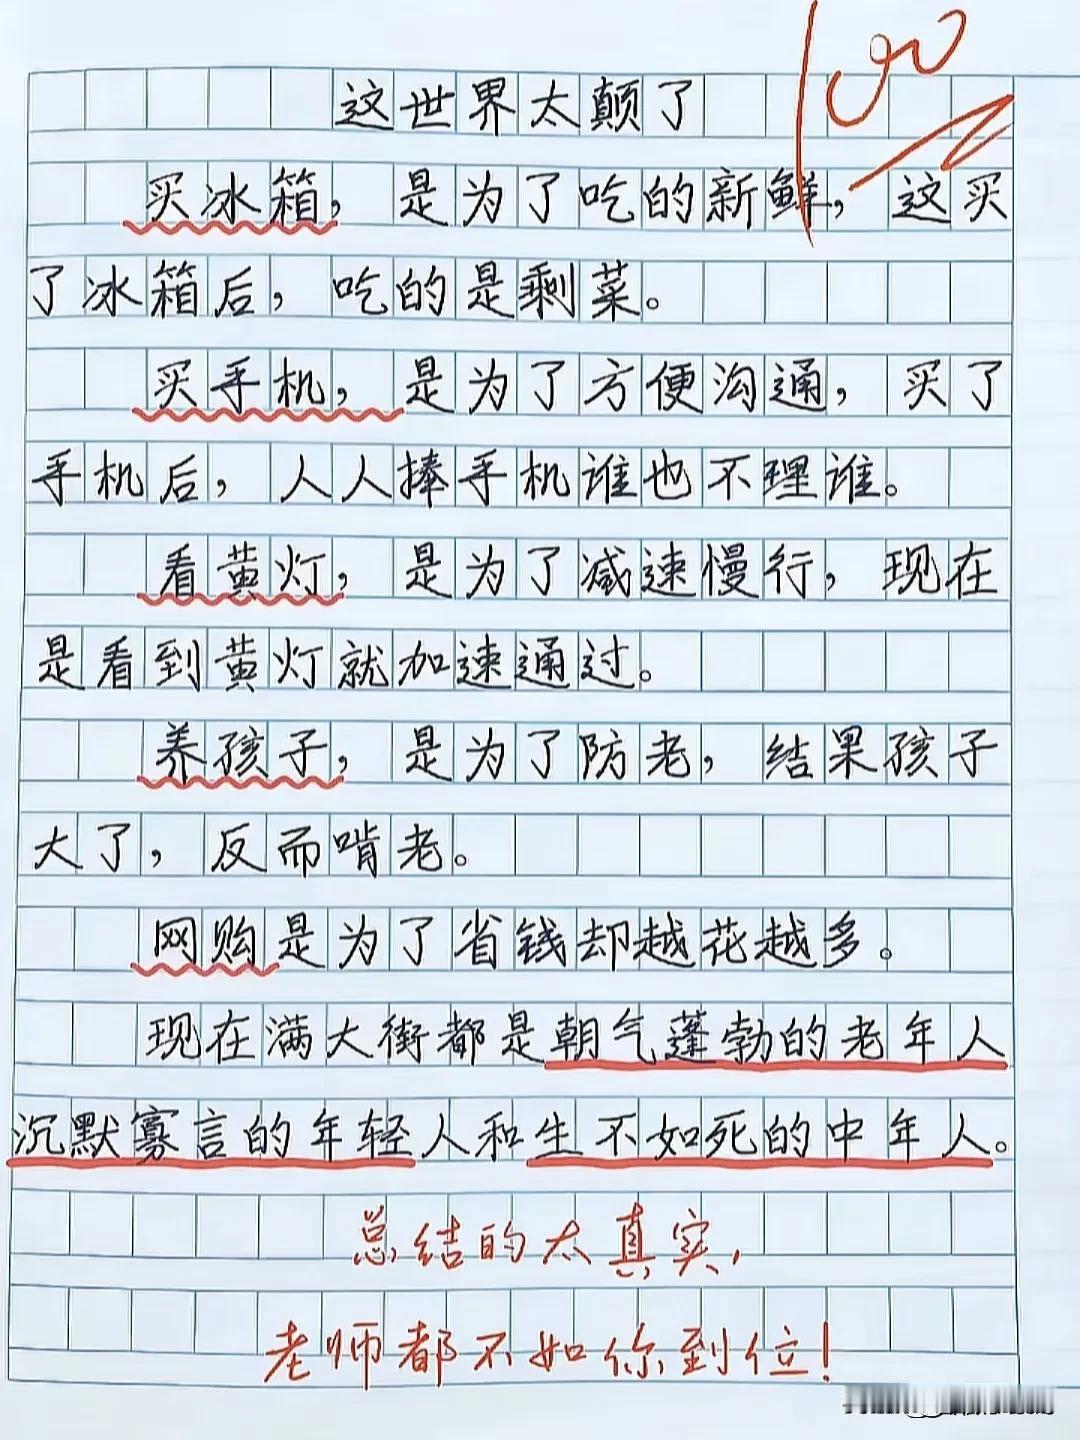 100
这世界太颠了
买冰箱，是为了吃的新鲜，这买
了冰箱后，吃的是剩菜。
买手机，是为了方便沟通，买了
手机后，人人捧手机谁也不理谁。
看黄灯，是为了减速慢行，现在
是看到黄灯就加速通过。
养孩子，是为了防老，结果孩子
大了，反而啃老。
网购是为了省钱却越花越多。
现在满大街都是朝气蓬勃的老年人
沉默寡言的年轻人和生不如死的中年人。
总结的太真实，
老师都不如你到位！